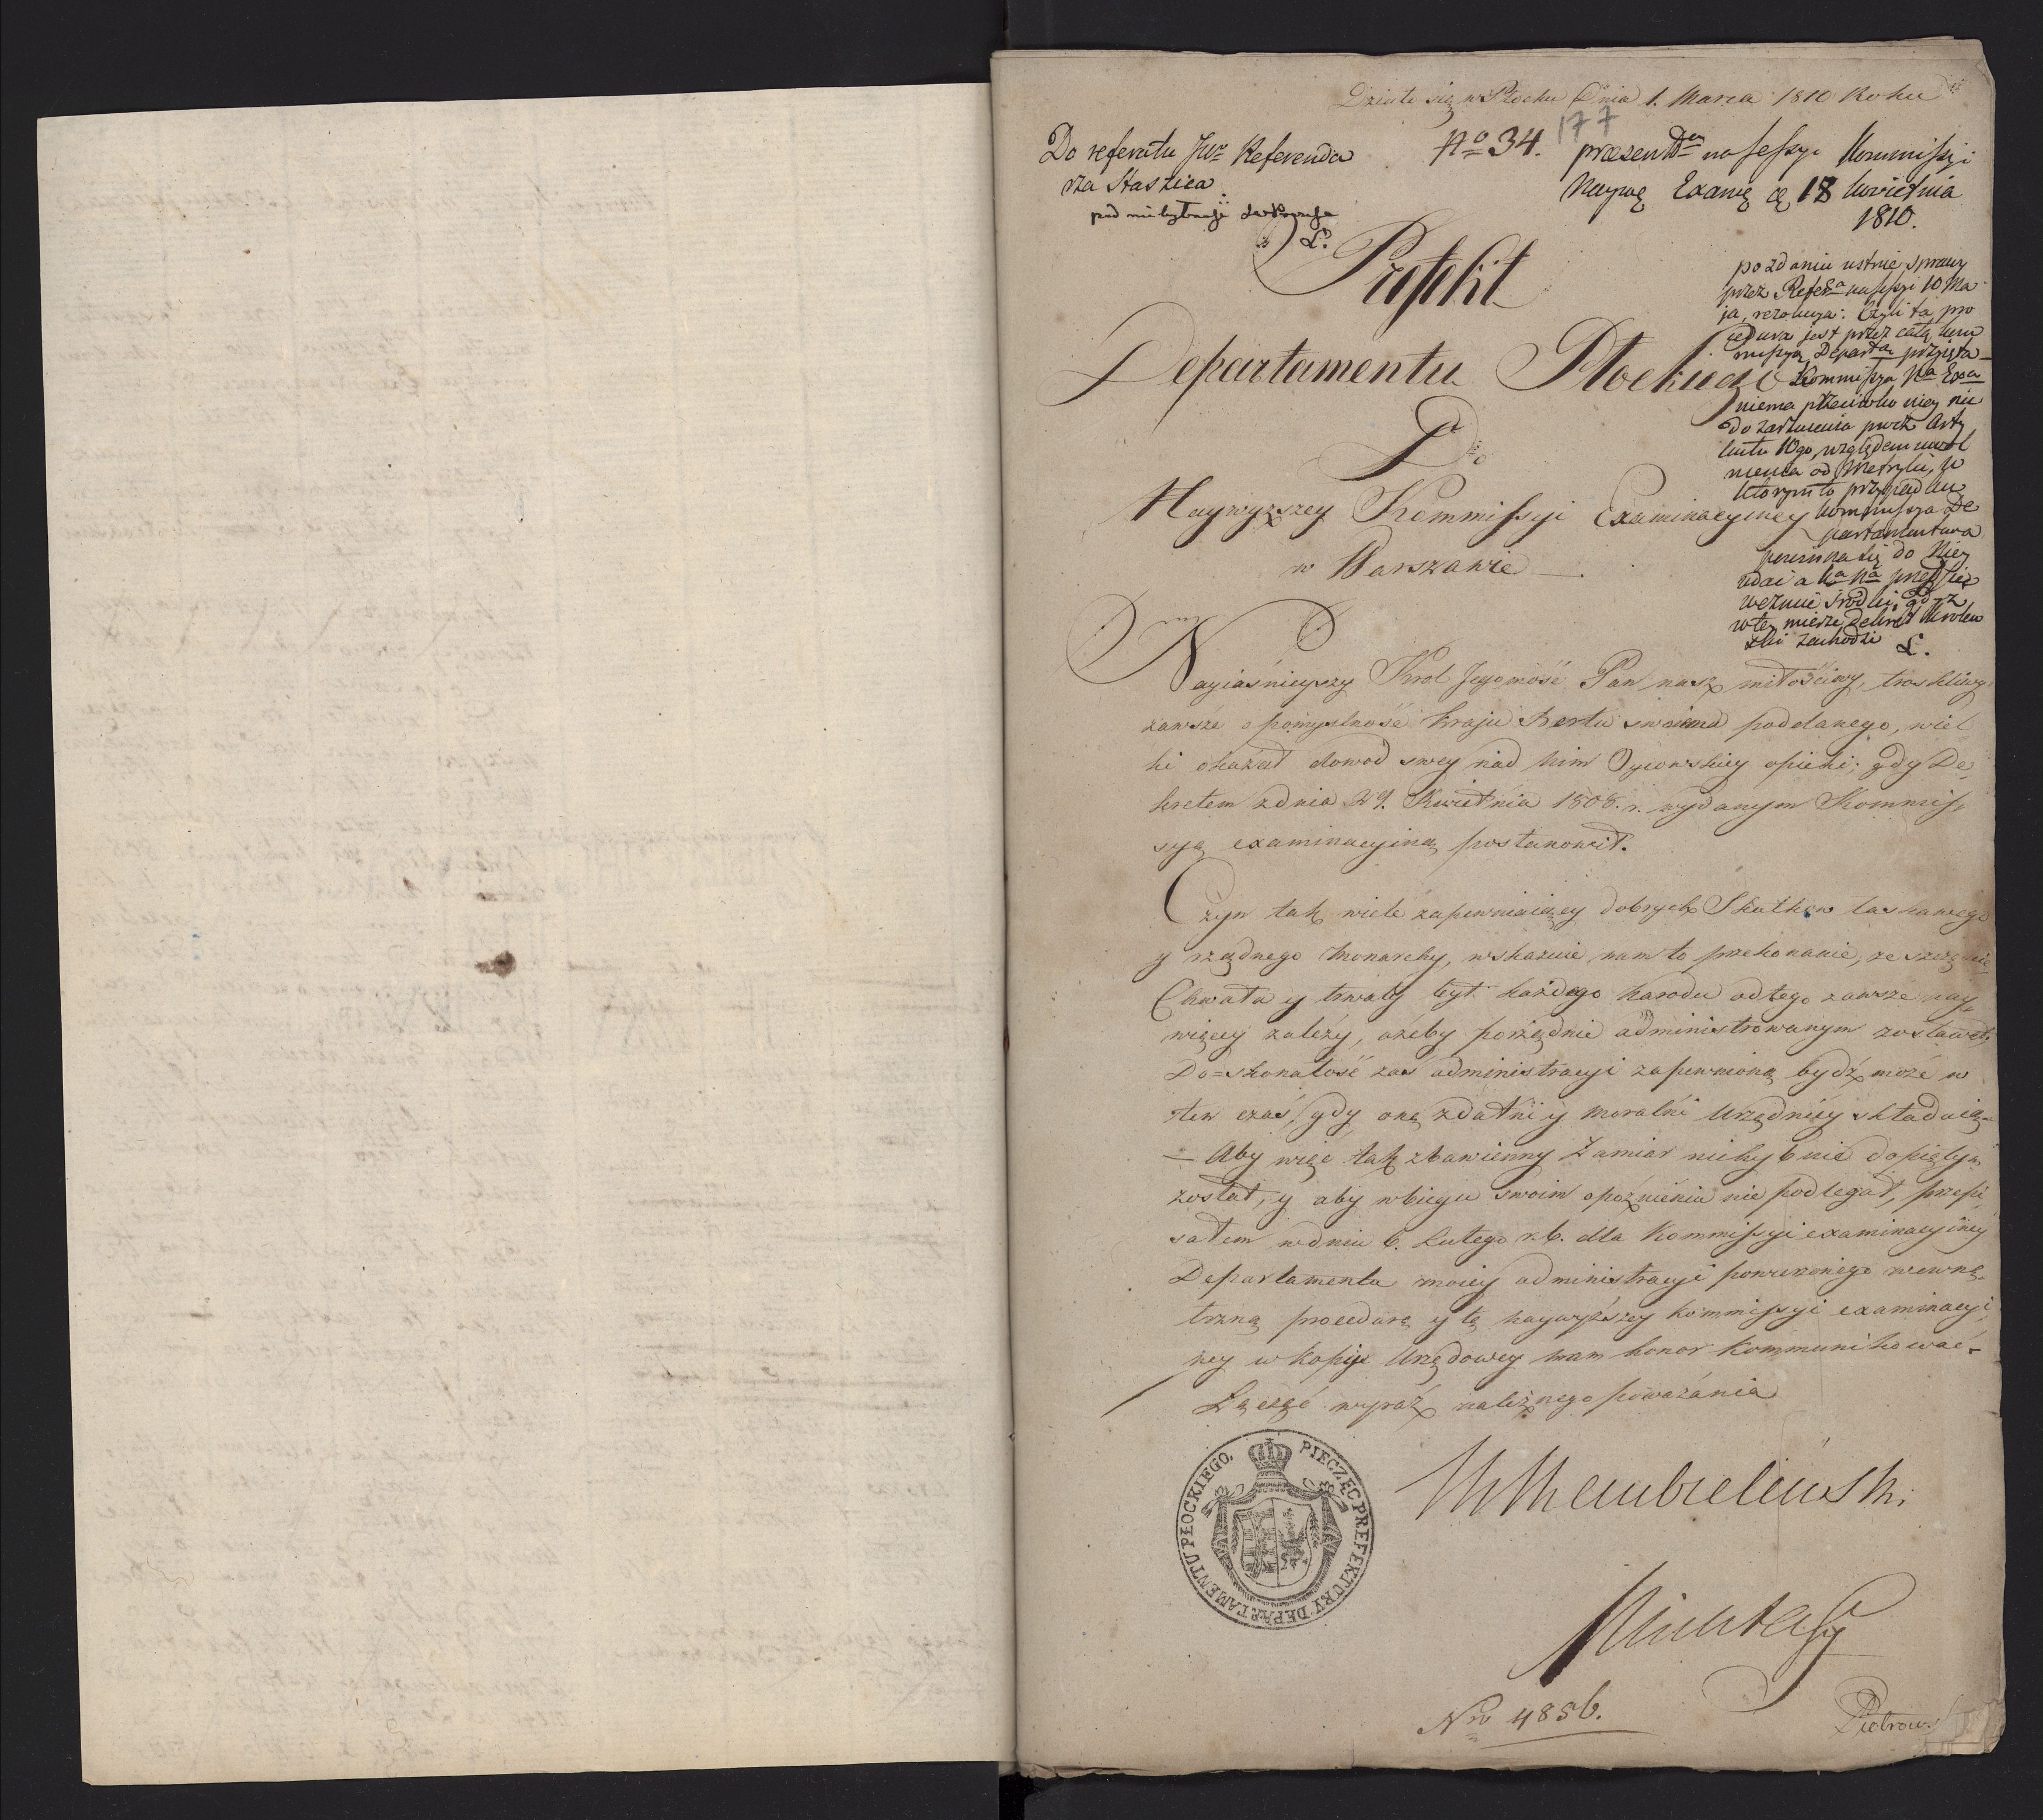 Działo się w Płocku Dnia 1. Marca 1810 Roku
177
Do referatu JW Referenda
rza Staszica
pod niebytność
L.
No 34.
praesentm na sessyi Kommissyi
Naywę Examę d. 18 kwietnia
1810.
Prefekt
Departamentu Płockiego
Do
Naywyższey Kommissyi Examinacyiney
w Warszawie
po zdaniu ustnie sprawy
przez Refera na sessyi 10 Ma
ja, rezolucya: Czyli ta pro
cedura jest przez całą kom
missyą Departa przyięta
Kommissya Na Exa
niema przeciwko niey nic
do zarzucenia prócz Arty
kułu 10go, względem uwol
nienia od Metryki, w
którym to przypadku
kommissya De
partamentowa
powinna się do Niey
udać a Ka Na przedsię
weźmie środki, gdyż
w tey mierze dekret Krolew
ski zachodzi L.
Nayiaśnieyszy Krol Jegomość Pan nasz miłościwy, troskliwy
zawsze o pomyslność kraju Berłu swoiemu poddanego, wiel
ki okazał dowod swey nad nim Oycowskiey opieki; gdy De
kretem z dnia 29. Kwietnia 1808. r. wydanym Kommis
syą examinacyiną postanowił.
Czyn tak wiele zapewniaiący dobrych Skutkow łaskawego
y rządnego Monarchy, wskazuie nam to przekonanie, ze szczęście
Chwała y trwały byt każdego Narodu od tego zawsze nay
więcey zależy, ażeby porządnie administrowanym zostawał,
Do=skonałość zaś administracyi zapewnioną bydź może w
ten czas, gdy oną zdatni y moralni Urzędnicy składaią.
— Aby więc tak zbawienny Zamiar niechybnie dopiętym
został, y aby w biegu swoim opoźnienia nie podlegał, przepi
sałem w dniu 6. Lutego r. b. dla Kommissyi examinacyiney
Departamentu moiey administracyi powierzonego wewnę
trzną procedurę y tę naywyższey Kommissyi examinacyi
ney w kopii Urzędowey mam honor kommunikować.
Łącząc wyraz należnego poważania
PIECZĘĆ PREFEKTURY DEPARTAMENTU PŁOCKIEGO.
Rembieliński
Nro 4856.